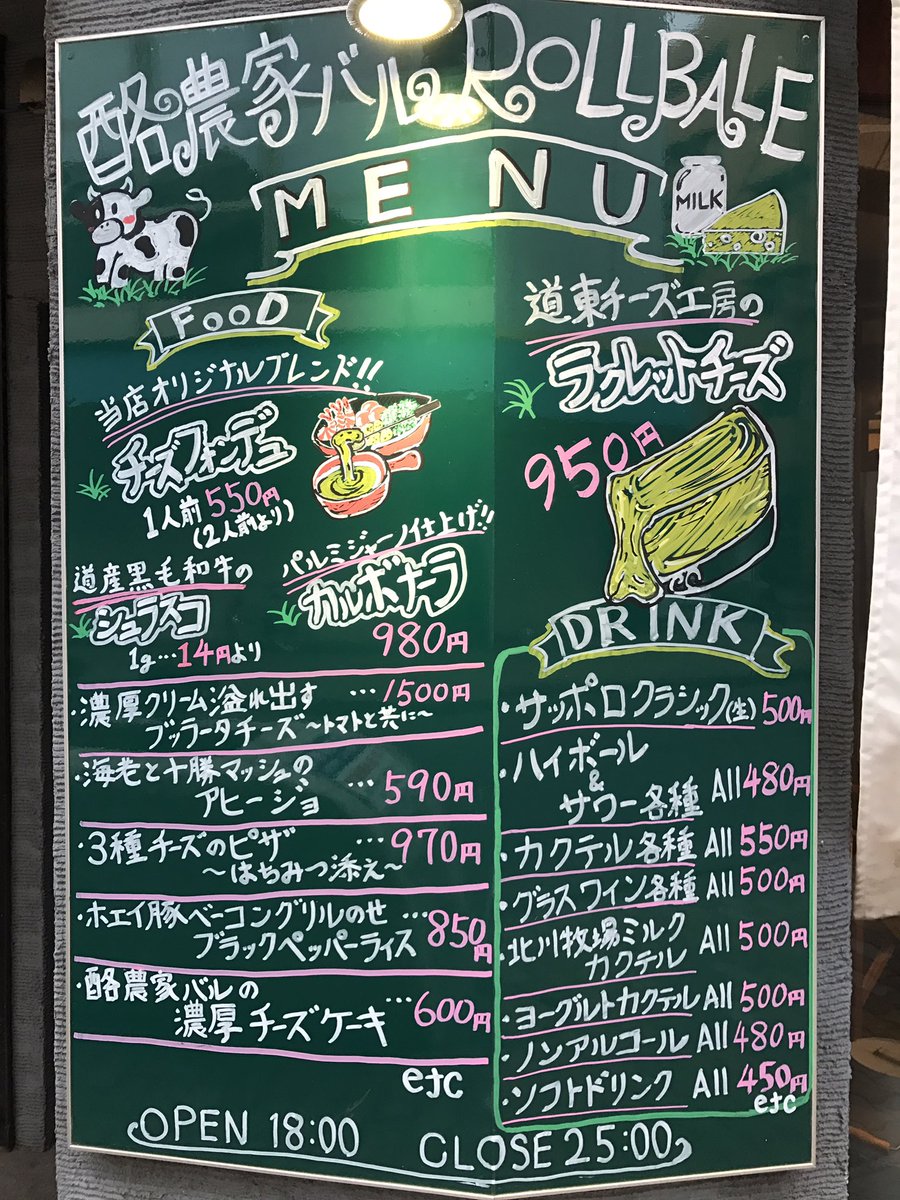 酪農家バル ROLLBALE
MENU
MILK
FOOD
当店オリジナルブレンド!!
チーズフォンデュ
1人前550円
(2人前より)
道産黒毛和牛の
シュラスコ
1g…14円より
パルミジャーノ仕上げ!!
カルボナーラ
980円
・濃厚クリーム溢れ出す …1500円
ブッラータチーズ〜トマトと共に〜
・海老と十勝マッシュの
アヒージョ …590円
・3種チーズのピザ …970円
〜はちみつ添え〜
・ホエイ豚ベーコングリルのせ…
ブラックペッパーライス 850円
・酪農家バルの
濃厚チーズケーキ …600円
etc
道東チーズ工房の
ラクレットチーズ
950円
DRINK
・サッポロクラシック(生) 500円
・ハイボール
&
サワー各種 All 480円
・カクテル各種 All 550円
・グラスワイン各種 All 500円
・北川牧場ミルク
カクテル All 500円
・ヨーグルトカクテル All 500円
・ノンアルコール All 480円
・ソフトドリンク All 450円
etc
OPEN 18:00 CLOSE 25:00